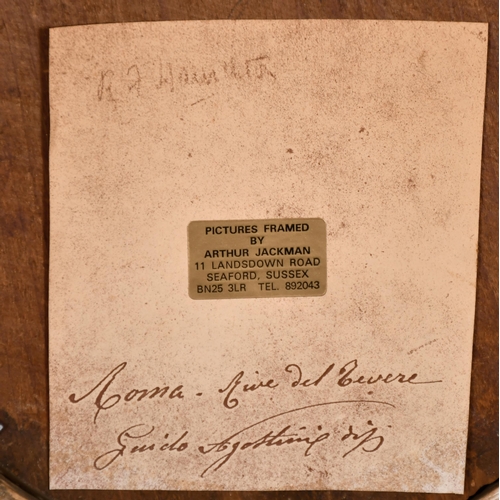 R F Hamilton
PICTURES FRAMED
BY
ARTHUR JACKMAN
11 LANDSDOWN ROAD
SEAFORD, SUSSEX
BN25 3LR TEL. 892043
Roma - Rive del Tevere
Guido Agostini